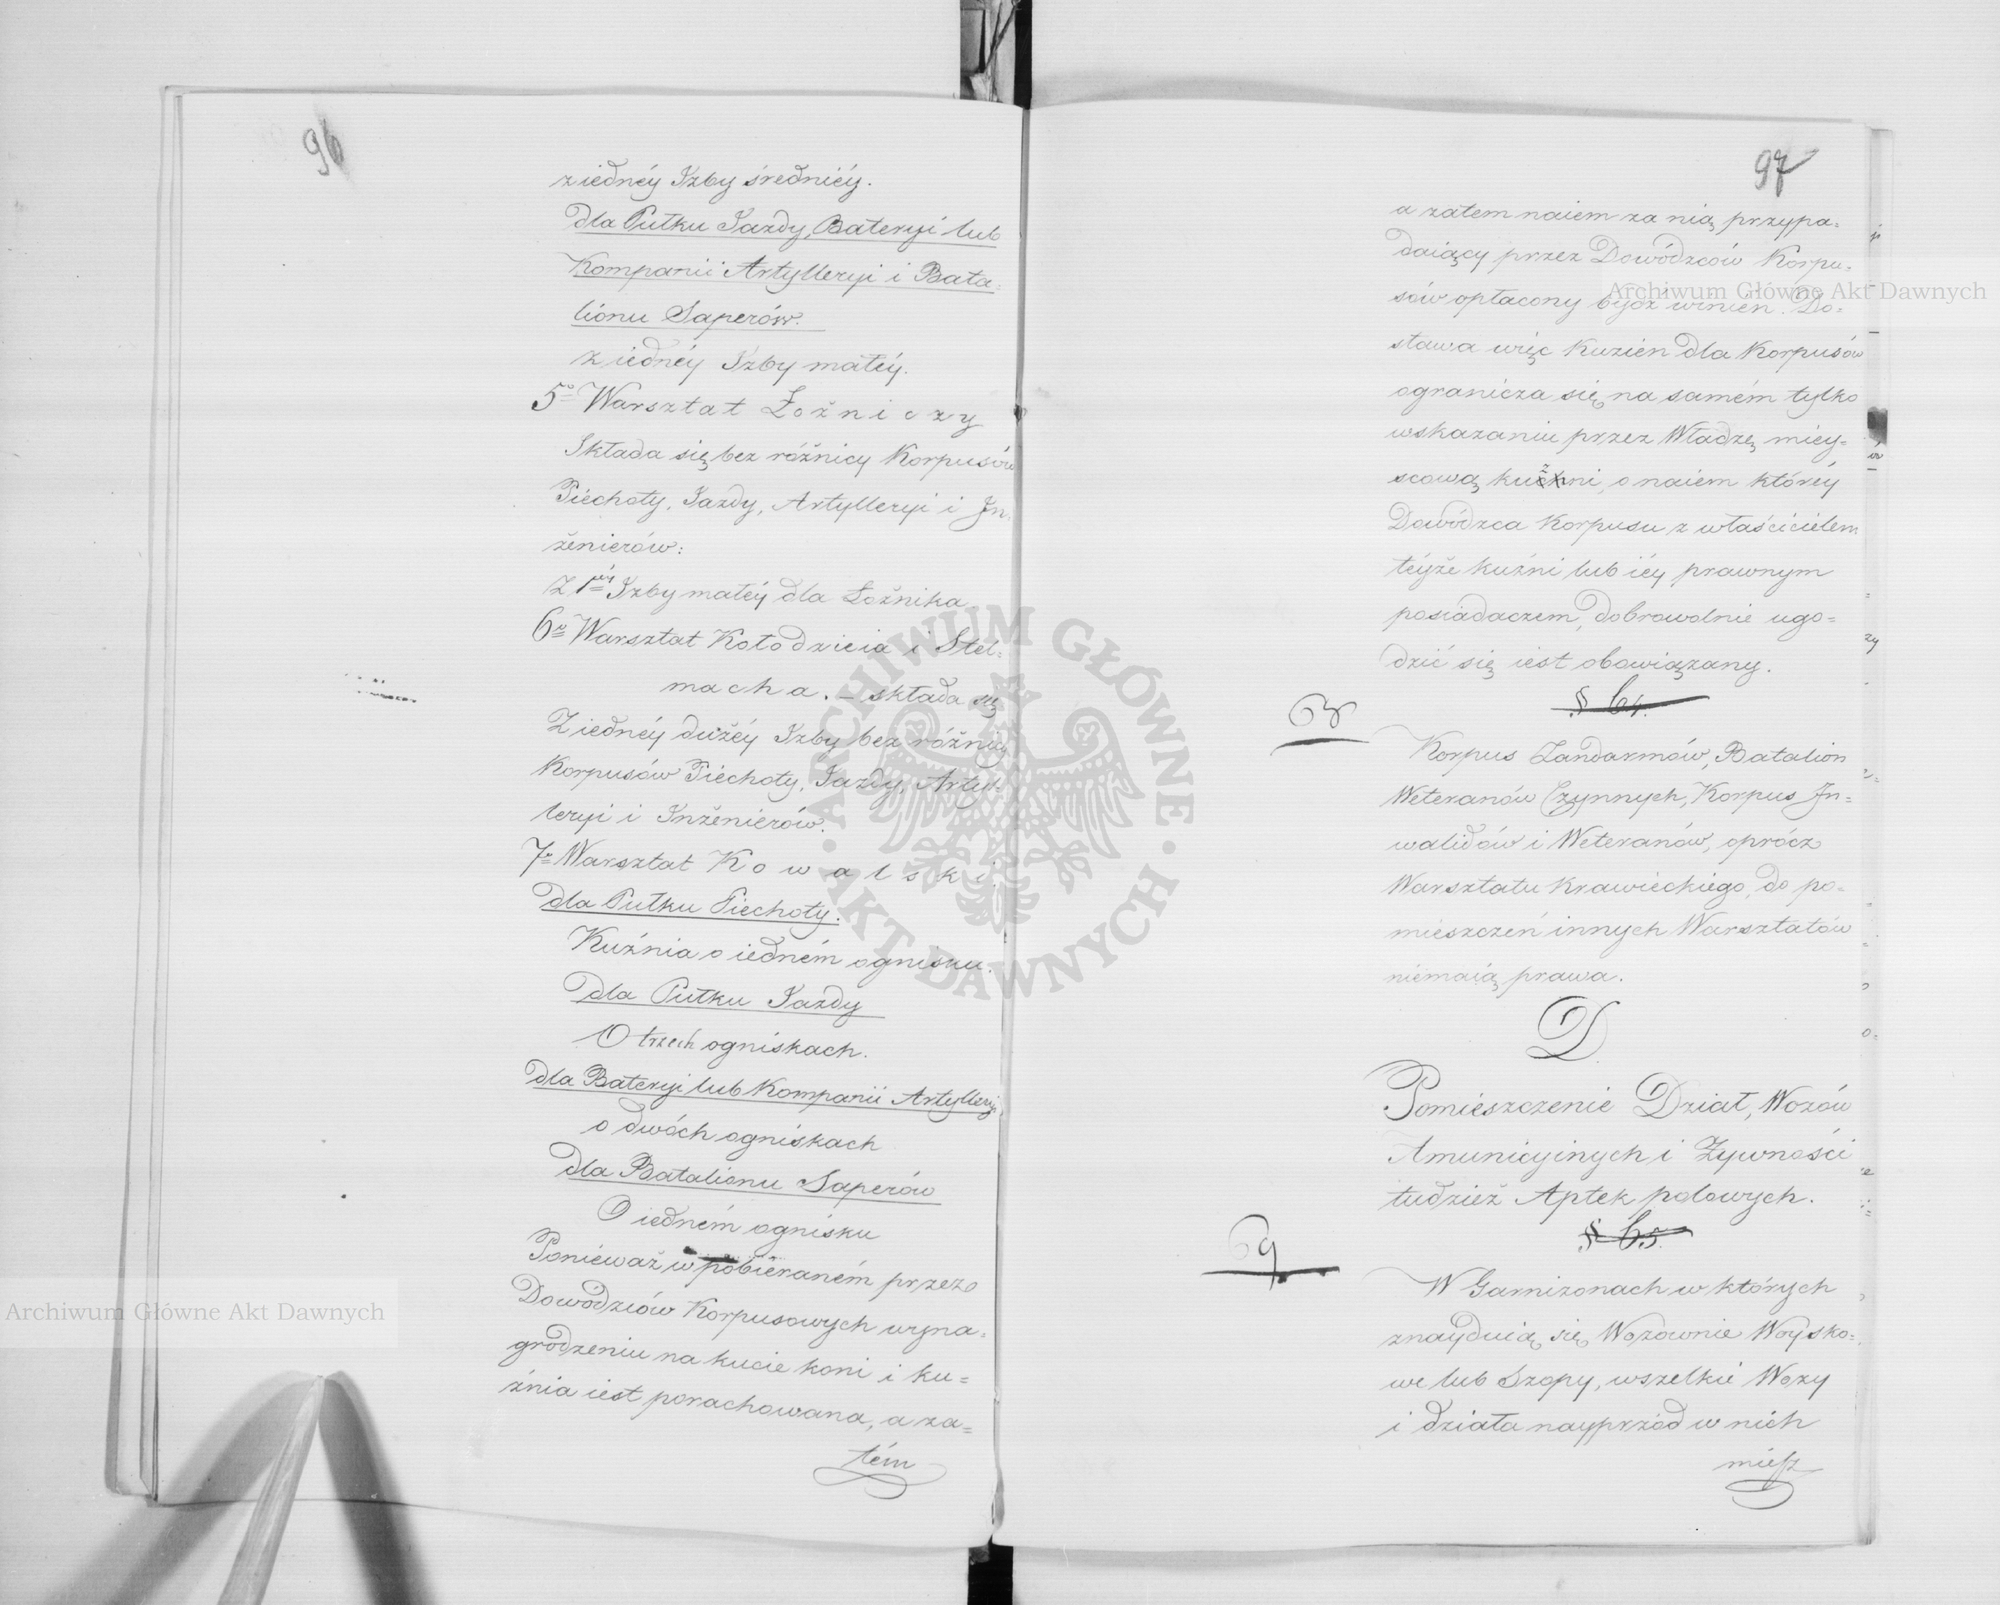 96
z iednéy Izby średniéy.
dla Pułku Jazdy, Bateryi lub
Kompanii Artylleryi i Bata=
lionu Saperów.
z iednéy Izby małéy.
5o Warsztat Łożniczy
Składa się bez różnicy Korpusów
Piechoty, Jazdy, Artylleryi i In=
żenierów:
Z 1néy Izby małéy dla Łożnika.
6o Warsztat Kołodzieia i Stel=
macha. – składa się
Z iednéy dużéy Izby bez różnicy
Korpusów Piechoty, Jazdy, Artyl=
leryi i Inżenierów.
7o Warsztat Kowalski
dla Pułku Piechoty.
Kuźnia o iedném ognisku.
dla Pułku Jazdy
O trzech ogniskach.
dla Bateryi lub Kompanii Artylleryi
o dwóch ogniskach
dla Batalionu Saperów
O iedném ognisku
Ponieważ w pobieraném przez
Dowódzców Korpusowych wyna=
grodzeniu na kucie koni i ku=
źnia iest porachowana, a za=
tém
97
a zatem naiem za nią przypa=
daiący przez Dowódzców Korpu=
sów opłacony bydź winien. Do=
stawa więc kuzien dla Korpusów
ogranicza się na samém tylko
wskazaniu przez Władzę miey=
scową kuzni, o naiem któréy
Dowódzca Korpusu z właścicielem
téyże kuźni lub iéy prawnym
posiadaczem, dobrowolnie ugo=
dzić się iest obowiązany.
§ 64.
68
Korpus Żandarmów, Batalion
Weteranów Czynnych, Korpus In=
walidów i Weteranów, oprócz
Warsztatu Krawieckiego, do po=
mieszczeń innych Warsztatów
niemaią prawa.
D.
Pomieszczenie Dział, Wozów
Amunicyinych i Żywności
tudzież Aptek polowych.
§ 65.
69
W Garnizonach w których
znayduią się Wozownie Woysko=
we lub Szopy, wszelkie Wozy
i działa nayprzód w nich
miesz
Archiwum Główne Akt Dawnych
Archiwum Główne Akt Dawnych
ARCHIWUM GŁÓWNE · AKT DAWNYCH ·